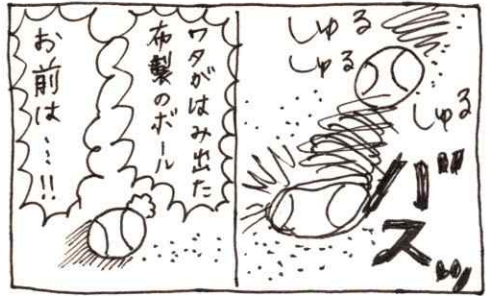 しゅる
しゅる
しゅる
バスッ
ワタがはみ出た
布製のボール
お前は…!!